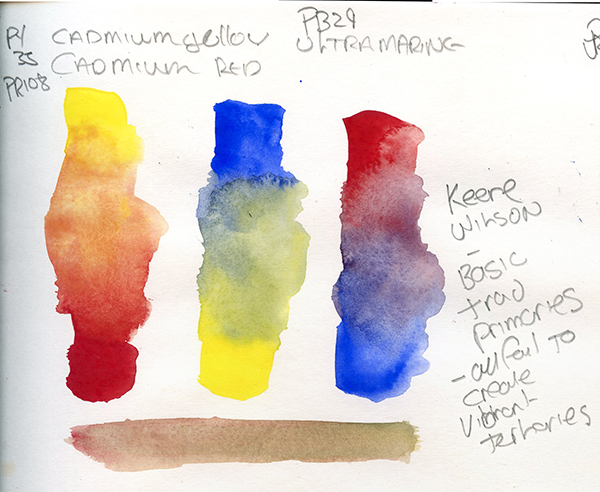 PY
35
CADMIUM yellow
CADMIUM RED
PR108
PB29
ULTRAMARINE
Keere
Wilson
-
Basic
trad
primaries
- all fail to
create
vibrant
tertiaries